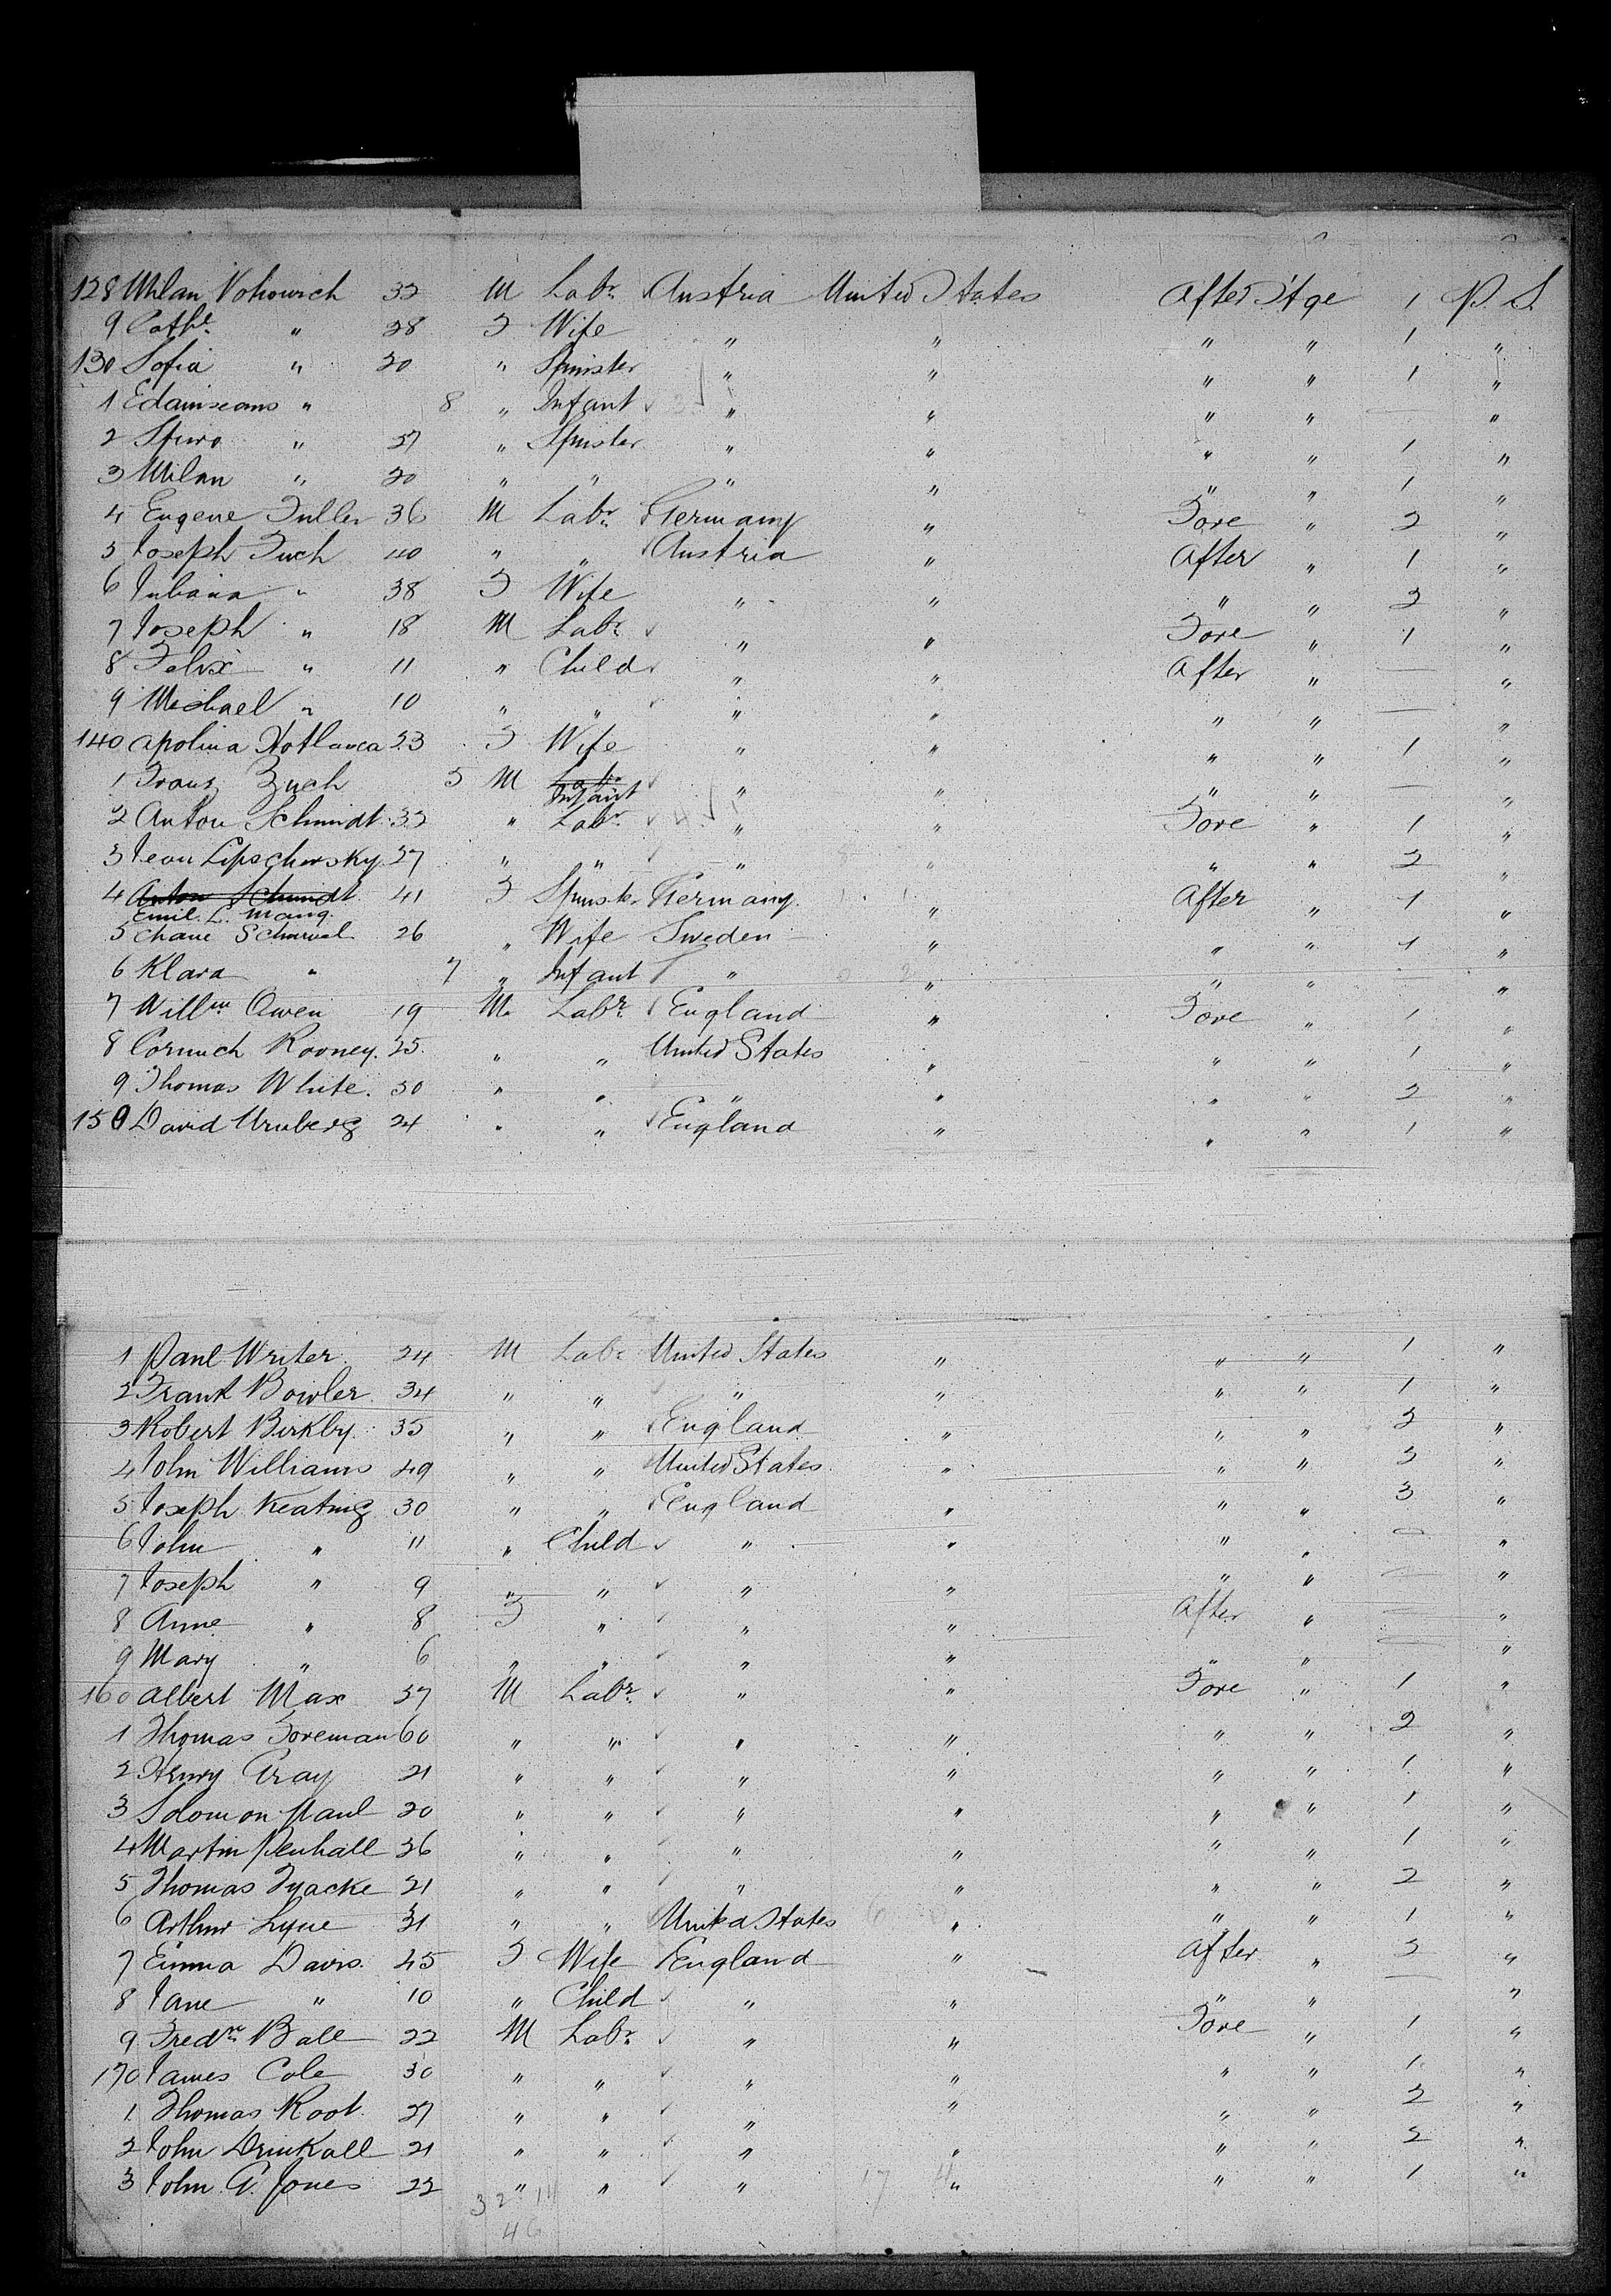 128 Milan Vohowich 32 M Labr. Austria United States After Stge 1 P. S.
9 Cathe. " 28 F Wife " " " " 1 "
130 Sofia " 20 " Spinster " " " " 1 "
1 " 8 " Infant " " " " — "
2 Spiro " 27 " Spinster " " " " 1 "
3 Milan " 20 " " " " " " 1 "
4 Eugene Fuller 36 M Labr. Germany " Fore " 2 "
5 Joseph Fuch 40 " " Austria " After " 1 "
6 Juliana " 38 F Wife " " " " 2 "
7 Joseph " 18 M Labr. " " Fore " 1 "
8 Felix " 11 " Child " " After " — "
9 Michael " 10 " " " " " " — "
140 Apolina 23 F Wife " " " " 1 "
1 Franz Zuch 5 M Labr. Infant " " " " — "
2 Anton Schmidt 32 " Labr. " " Fore " 1 "
3 Jean Lipschewsky 27 " " " " " " 2 "
4 Anton Schmidt 41 F Spinster Germany " After " 1 "
Emil. L. Mang.
5 Chane 26 " Wife Sweden " " " 1 "
6 Klara " 7 " Infant " " " " — "
7 Willm. Owen 19 M. Labr. England " Fore " 1 "
8 Cormick Rooney. 25. " " United States " " " 1 "
9 Thomas White. 30 " " " " " " 2 "
150 David 24 " " England " " " 1 "
1 Paul Writer 24 M Labr United States " " " 1 "
2 Frank Bowler 34 " " " " " " 1 "
3 Robert Birkby 35 " " England " " " 2 "
4 John Williams 49 " " United States " " " 3 "
5 Joseph Keating 30 " " England " " " 3 "
6 John " 11 " Child " " " " — "
7 Joseph " 9 " " " " " " — "
8 Anne " 8 F " " " After " — "
9 Mary " 6 " " " " " " — "
160 Albert Max 37 M Labr. " " Fore " 1 "
1 Thomas Foreman 60 " " " " " " 2 "
2 Henry Gray 21 " " " " " " 1 "
3 Solomon Paul 20 " " " " " " 1 "
4 Martin Penhall 36 " " " " " " 1 "
5 Thomas Tyacke 21 " " " " " " 2 "
6 Arthur Lyne 31 " " United States " " " 1 "
7 Emma Davis. 45 F Wife England " After " 3 "
8 Jane " 10 " Child " " " " — "
9 Fredk. Ball 22 M Labr. " " Fore " 1 "
170 James Cole 30 " " " " " " 1 "
1 Thomas Root 27 " " " " " " 2 "
2 John Drinkall 21 " " " " " " 2 "
3 John G. Jones 22 " " " " " " 1 "
32 14 17 4
46